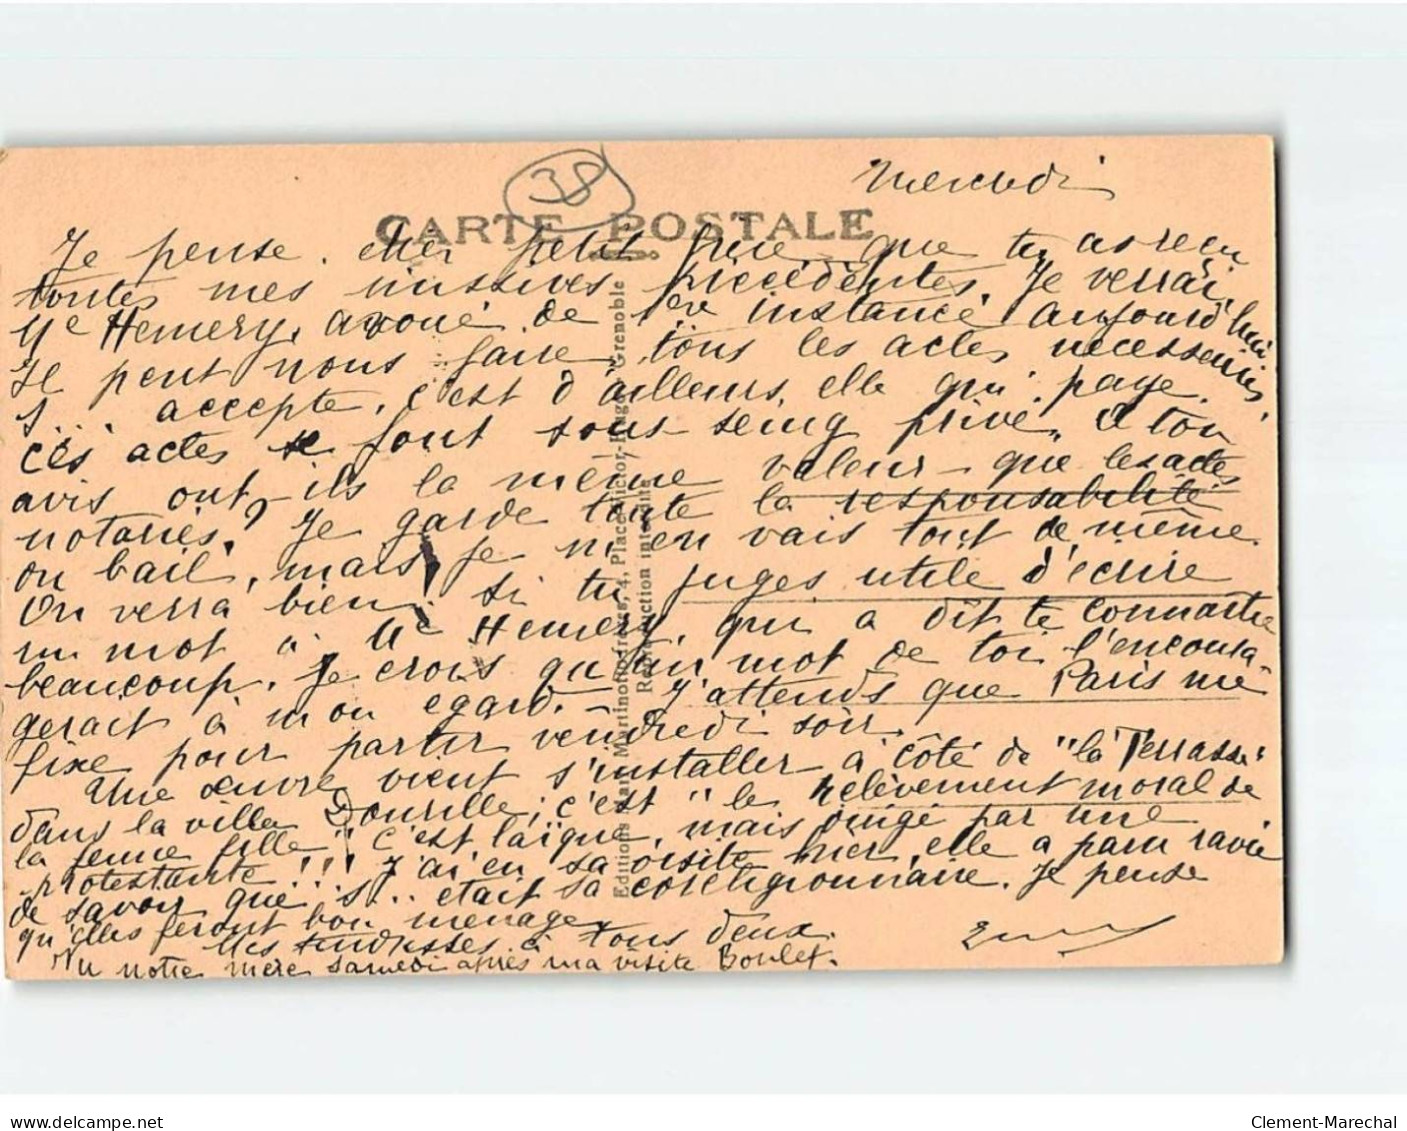 38
Mercredi
CARTE POSTALE
Je pense, cher petit frère, que tu as reçu
toutes mes missives précédentes. Je verrai
Me Hemery, avoué de 1ere instance aujourd'hui
Il peut nous faire tous les actes nécessaires,
S... accepte, c'est d'ailleurs elle qui paye.
ces actes se font sous-seing privé. A ton
avis ont-ils la même valeur que les actes
notariés? Je garde toute la responsabilité
du bail, mais je m'en vais tout de même.
On verra bien! si tu juges utile d'écrire
un mot à Me Hemery, qui a dit te connaître
beaucoup, je crois qu'un mot de toi l'encoura-
gerait à mon égard. - J'attends que Paris me
fixe pour partir vendredi soir.
Une œuvre vient s'installer à côté de "la Terrasse"
dans la villa Dourille; c'est "le Relèvement moral de
la jeune fille" c'est laïque, mais dirigé par une
protestante!!! J'ai eu sa visite hier, elle a paru ravie
de savoir que S... était sa coreligionnaire. Je pense
qu'elles feront bon ménage.
Mes tendresses à tous deux.
Vu notre mère samedi après ma visite Boulet.
Editions Martinotto frères, 4, Place Victor-Hugo, Grenoble
Reproduction interdite
Clement-Marechal
www.delcampe.net